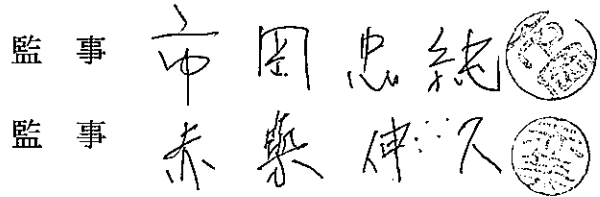 監事 市岡忠純
監事 赤𣘺伸久